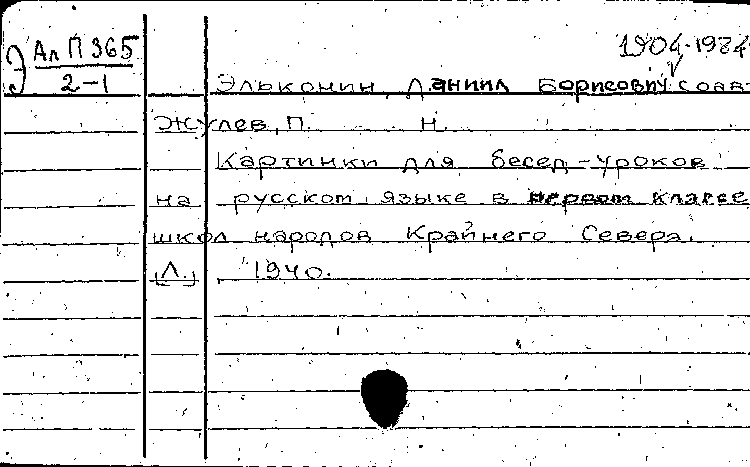 1904-1984
Э Ал П 365
2-1
Эльконин, Даниил Борисович, соав-
Жулев, П. Н.
Картинки для бесед-уроков
на русском языке в первом классе
школ народов Крайнего Севера.
[Л.], 1940.